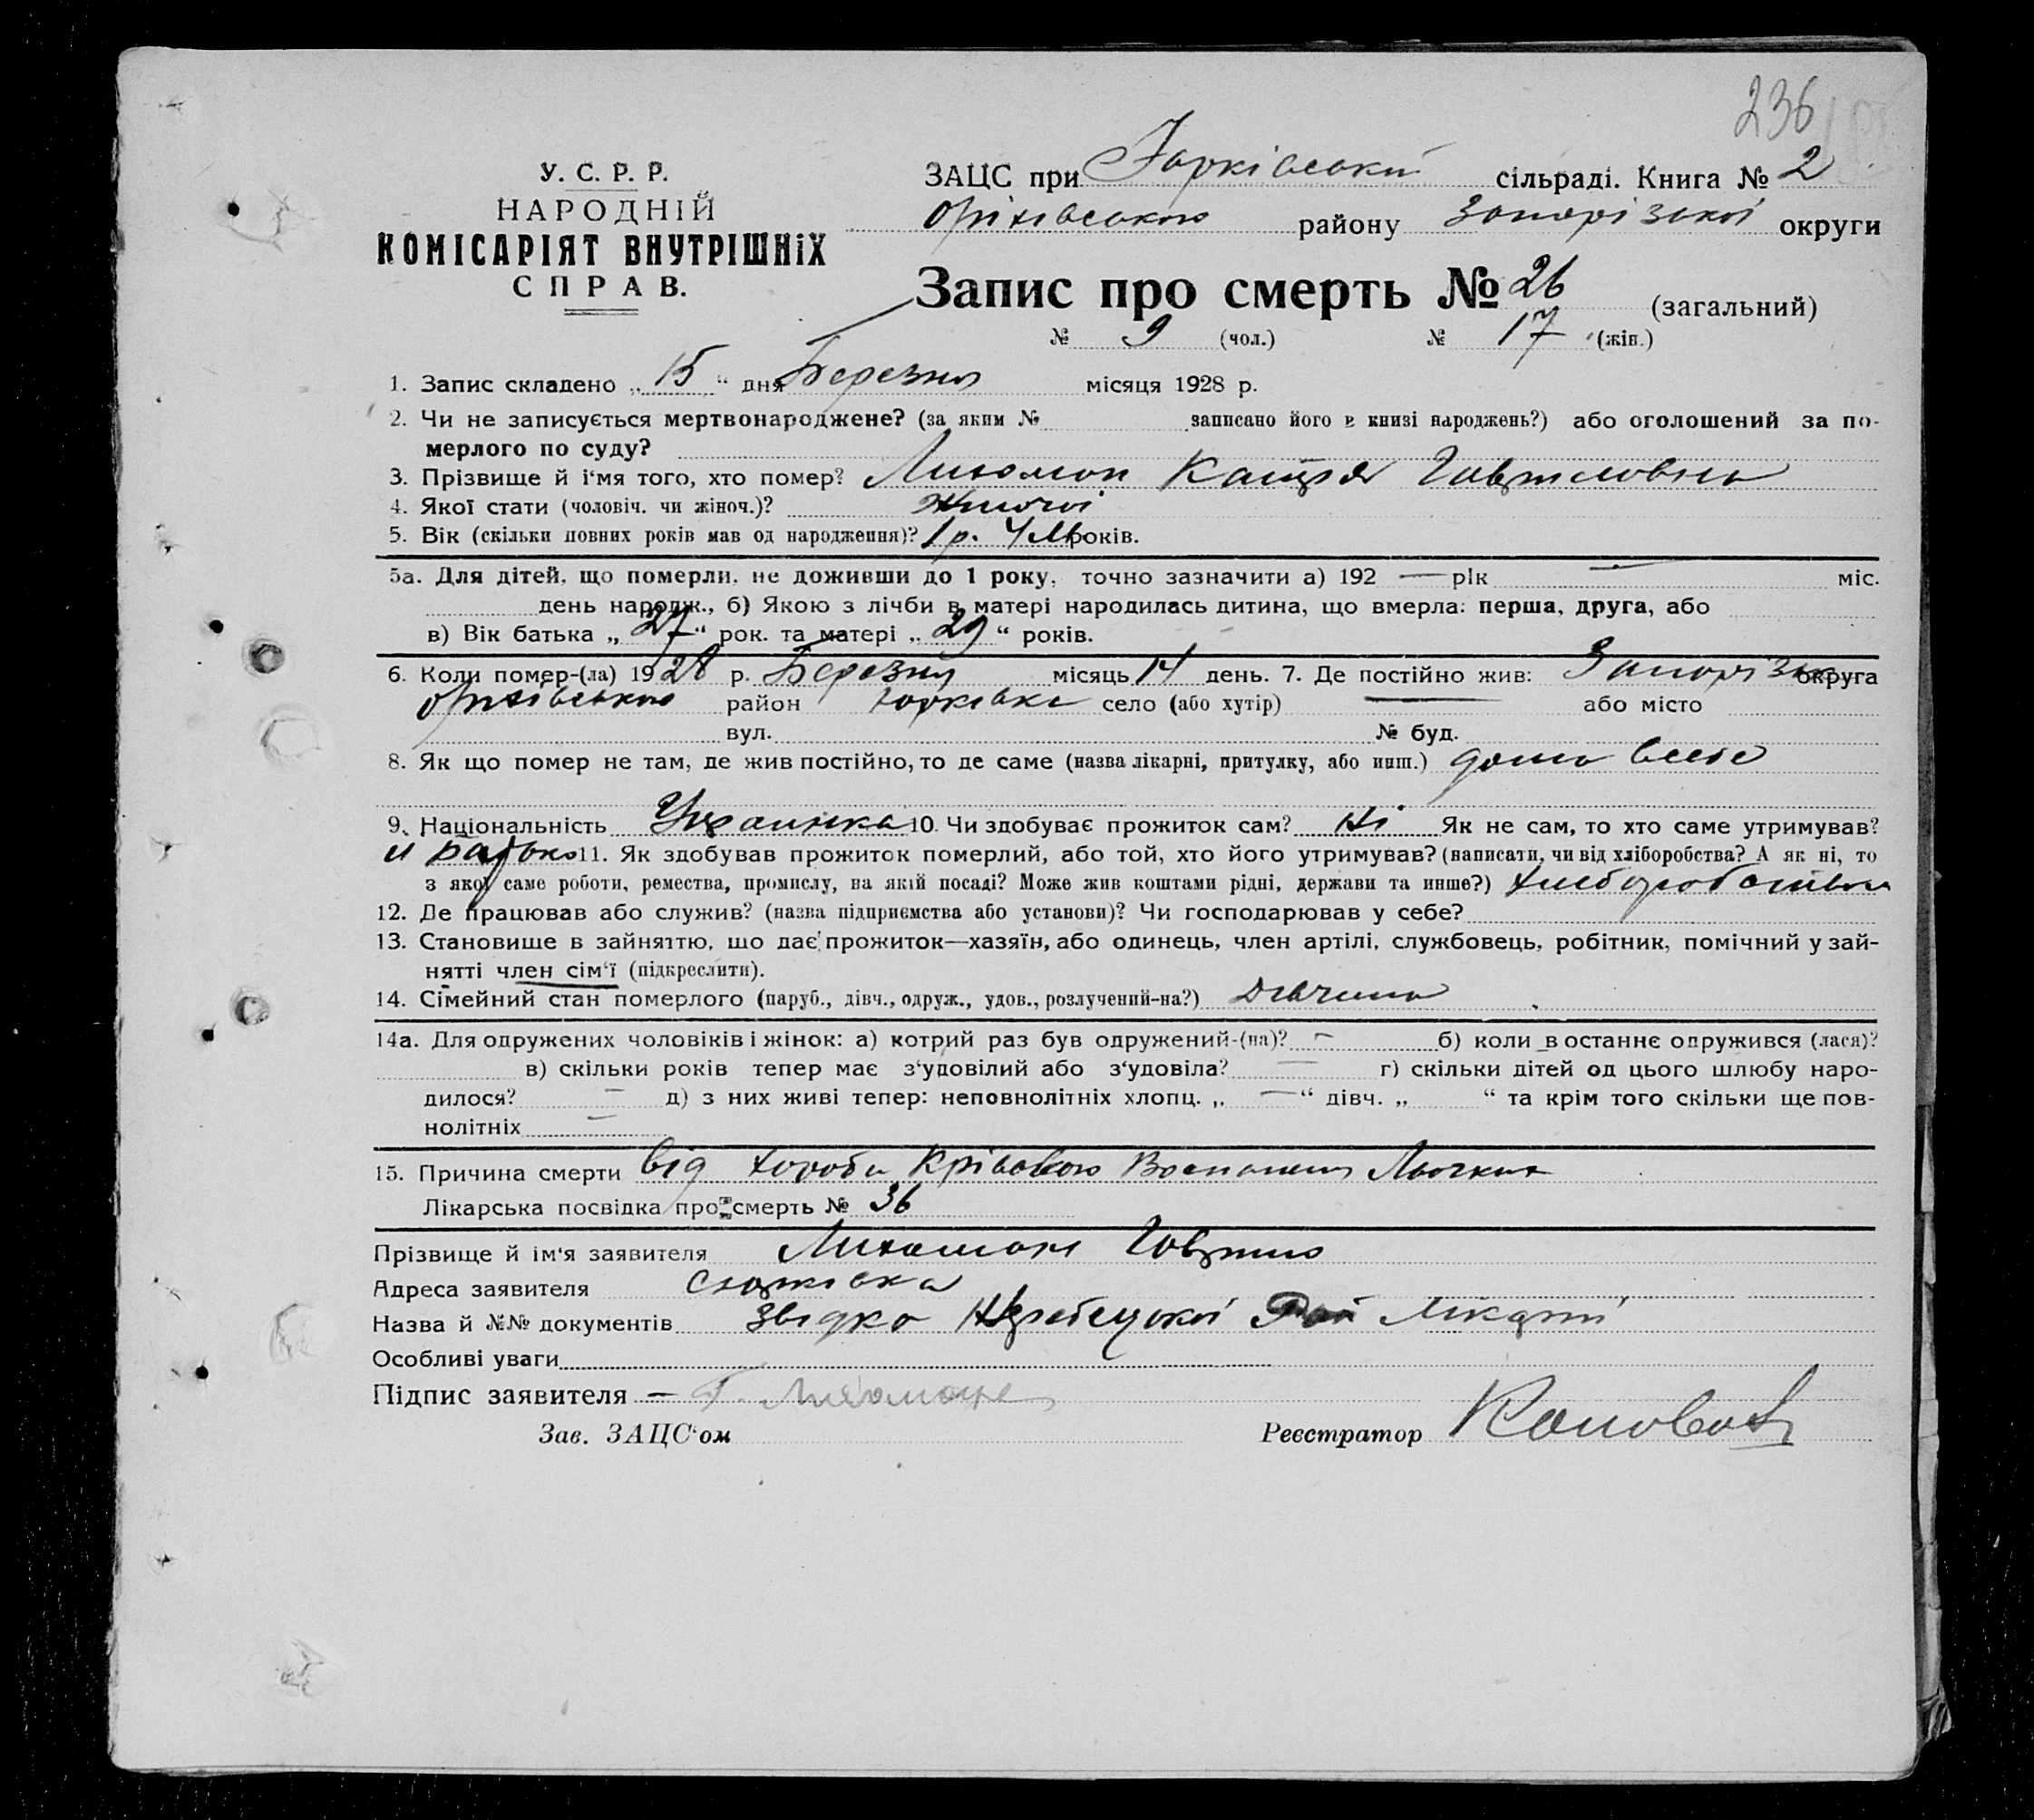 236
У. С. Р. Р.
НАРОДНІЙ
КОМІСАРІЯТ ВНУТРІШНІХ
СПРАВ.
ЗАЦС при Юрківській сільраді. Книга № 2
Оріхівського району Запорізької округи
Запис про смерть № 26 (загальний)
№ 9 (чол.) № 17 (жін.)
1. Запис складено „ 15 “ дня Березня місяця 1928 р.
2. Чи не записується мертвонароджене? (за яким № записано його в книзі народжень?) або оголошений за по-
мерлого по суду?
3. Прізвище й і‘мя того, хто помер? Лихоман Катря Гавриловна
4. Якої стати (чоловіч. чи жіноч.)? жіночої
5. Вік (скільки повних років мав од народження)? 1 р. 4 м. років.
5а. Для дітей, що померли, не доживши до 1 року, точно зазначити а) 192 — рік — міс.
день народж., б) Якою з лічби в матері народилась дитина, що вмерла: перша, друга, або
в) Вік батька „ 27 “ рок. та матері „ 29 “ років.
6. Коли помер-(ла) 1928 р. Березня місяць 14 день. 7. Де постійно жив: Запорізька округа
Оріхівського район Юрківка село (або хутір) — або місто
вул. № буд.
8. Як що помер не там, де жив постійно, то де саме (назва лікарні, притулку, або инш.) дома
9. Національність Украинка 10. Чи здобуває прожиток сам? Ні Як не сам, то хто саме утримував?
батько 11. Як здобував прожиток померлий, або той, хто його утримував? (написати, чи від хліборобства? А як ні, то
з якої саме роботи, ремества, промислу, на якій посаді? Може жив коштами рідні, держави та инше?) хліборобством
12. Де працював або служив? (назва підприємства або установи)? Чи господарював у себе?
13. Становище в зайняттю, що дає прожиток—хазяїн, або одинець, член артілі, службовець, робітник, помічний у зай-
нятті член сім‘ї (підкреслити).
14. Сімейний стан померлого (паруб., дівч., одруж., удов., розлучений-на?) Дівчина
14а. Для одружених чоловіків і жінок: а) котрий раз був одружений-(на)? — б) коли в останнє одружився (лася)?
в) скільки років тепер має з‘удовілий або з‘удовіла? — г) скільки дітей од цього шлюбу наро-
дилося? — д) з них живі тепер: неповнолітніх хлопц. „ — “ дівч. „ “ та крім того скільки ще пов-
нолітніх —
15. Причина смерти від хороби Воспаления
Лікарська посвідка про смерть № 36
Прізвище й ім‘я заявителя Лихоман Гаврило
Адреса заявителя с Юрківка
Назва й №№ документів лікарні
Особливі уваги
Підпис заявителя — Г. Лихоман
Зав. ЗАЦС‘ом Реєстратор